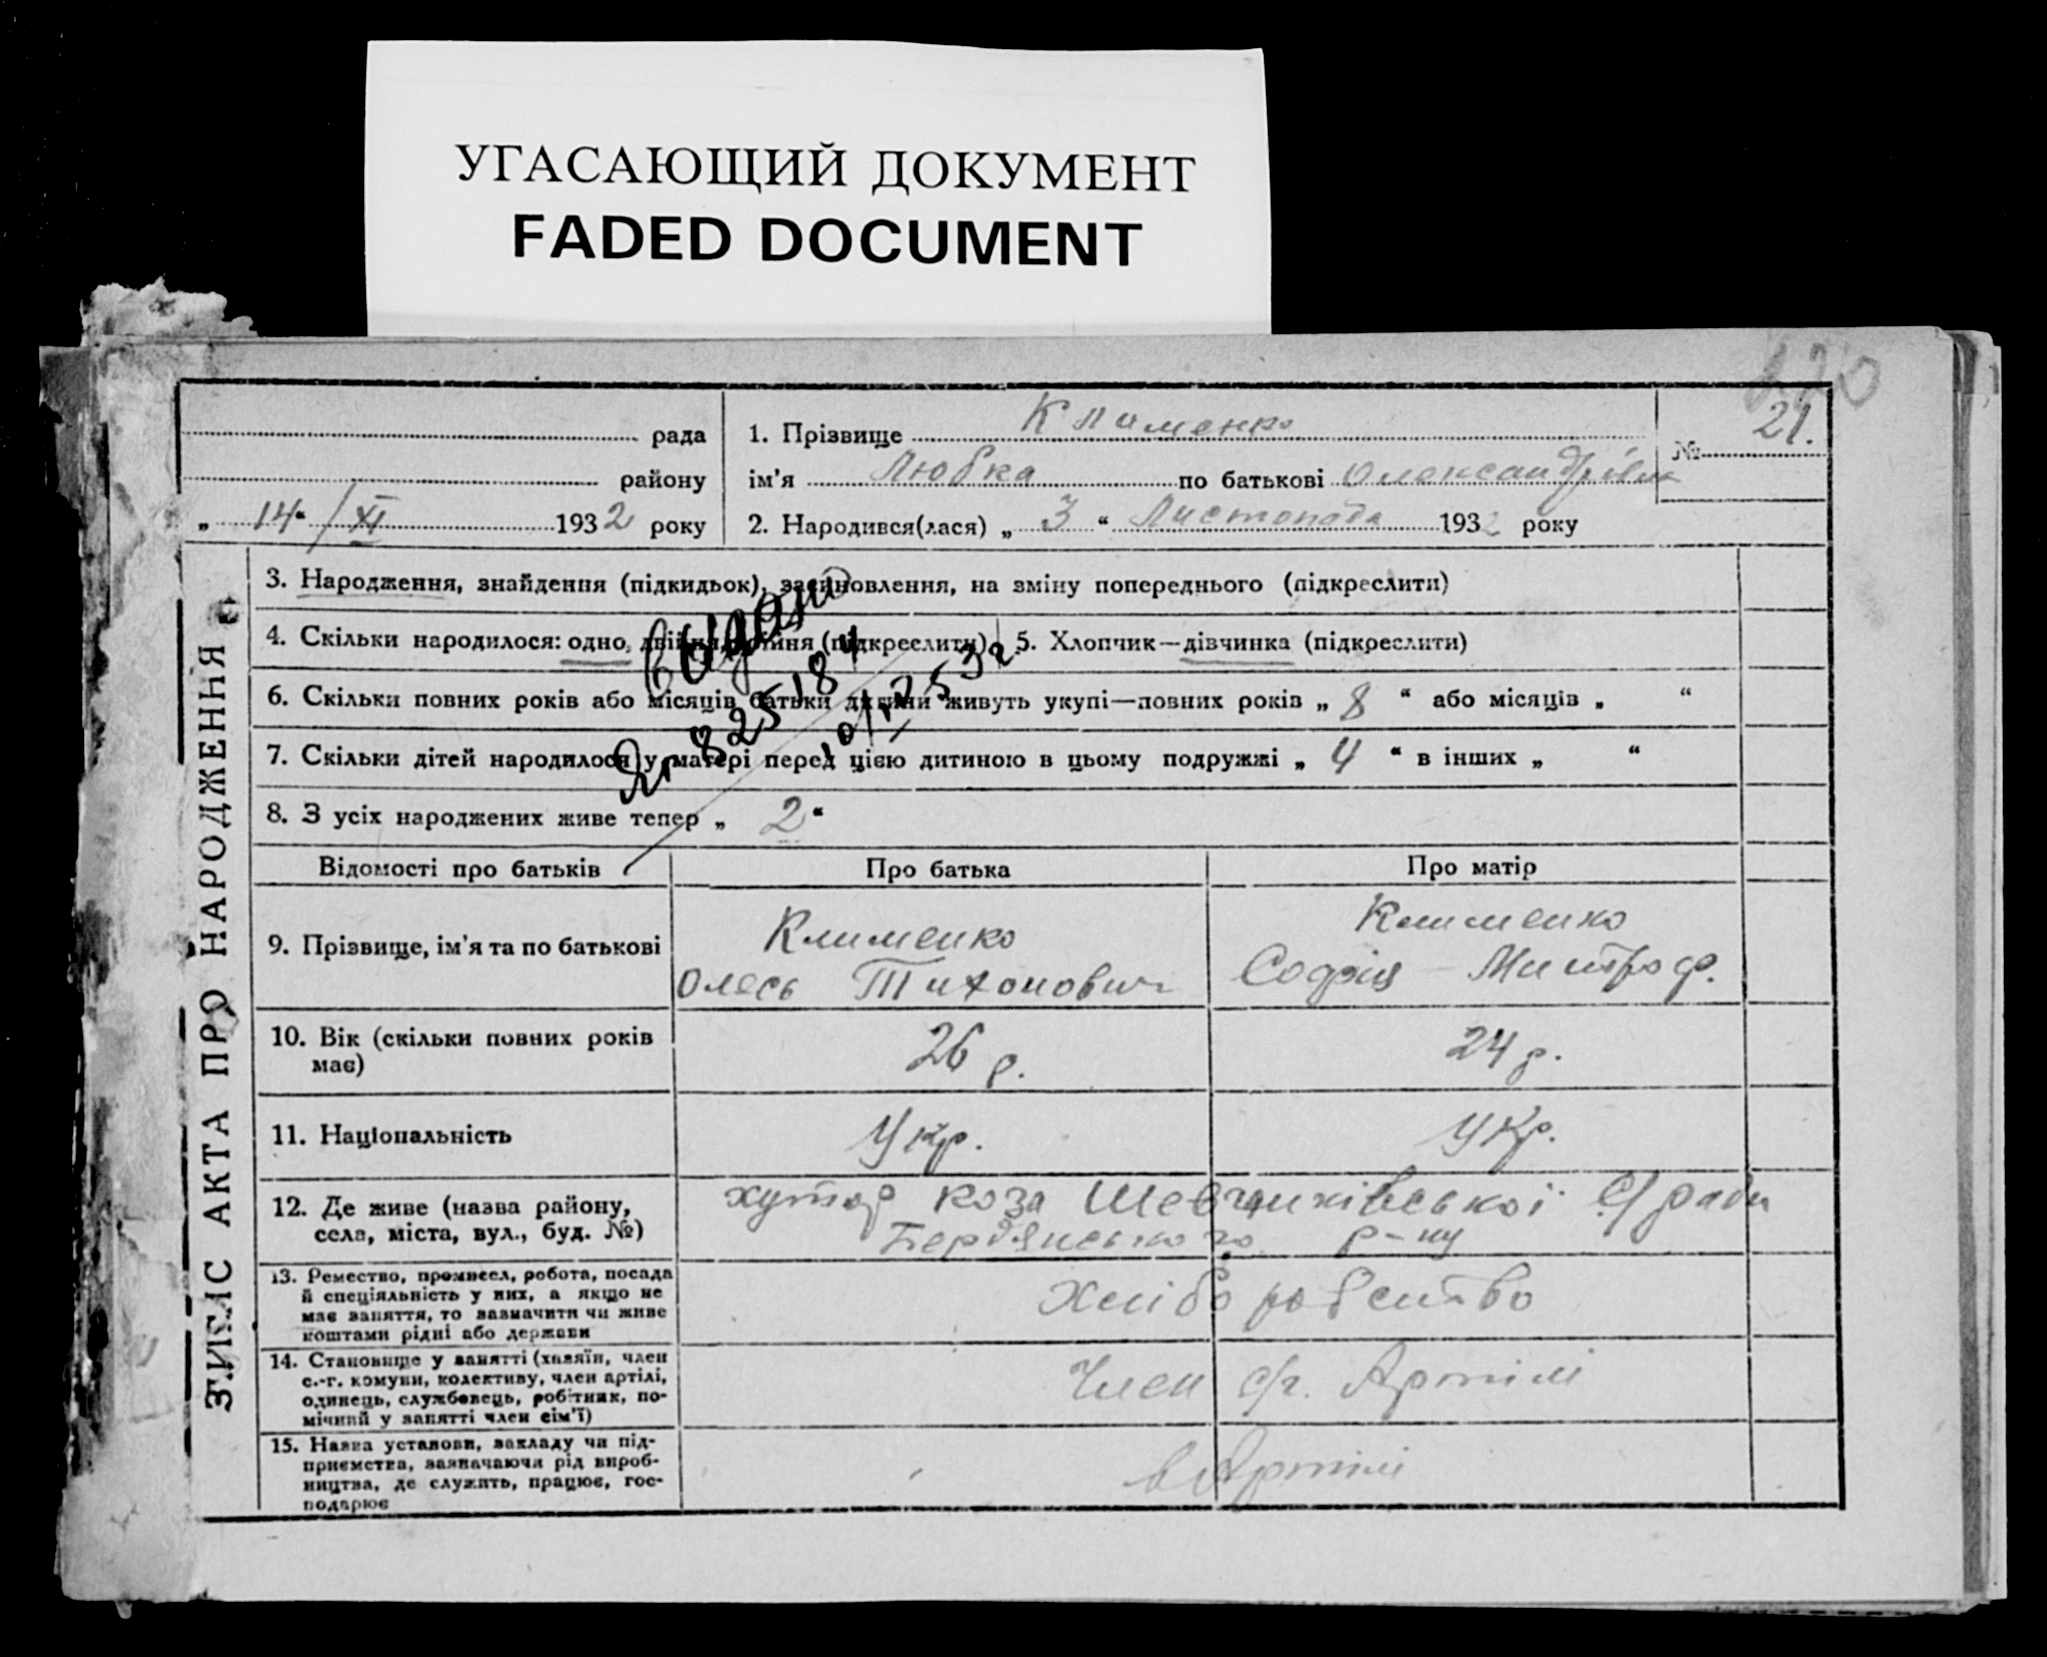 УГАСАЮЩИЙ ДОКУМЕНТ
FADED DOCUMENT
рада
району
„ 14 “ / XI 1932 року
1. Прізвище Клименко
ім'я Любка по батькові Олександрівна
2. Народився(лася) „ 3 “ Листопада 1932 року
№ 21.
ЗАПИС АКТА ПРО НАРОДЖЕННЯ
3. Народження, знайдення (підкидьок), засиновлення, на зміну попереднього (підкреслити)
4. Скільки народилося: одно, двійня, трійня (підкреслити) 5. Хлопчик—дівчинка (підкреслити)
6. Скільки повних років або місяців батьки дитини живуть укупі—повних років „ 8 “ або місяців „ “
7. Скільки дітей народилося у матері перед цією дитиною в цьому подружжі „ 4 “ в інших „ “
8. З усіх народжених живе тепер „ 2 “
Відомості про батьків Про батька Про матір
9. Прізвище, ім'я та по батькові
Клименко
Олесь Тихонович
Клименко
Софія Митроф.
10. Вік (скільки повних років
має)
26 р.
24 р.
11. Національність
Укр.
Укр.
12. Де живе (назва району,
села, міста, вул., буд. №)
хутор коза Шевчиківської С/ради
Бердянського р-ну
13. Ремество, промисел, робота, посада
й спеціяльність у них, а якщо не
має заняття, то зазначити чи живе
коштами рідні або держави
Хліборобство
14. Становище у занятті (хазяїн, член
с.-г. комуни, колективу, член артілі,
одинець, службовець, робітник, по-
мічний у занятті член сім'ї)
Член с/г. Артілі
15. Назва установи, закладу чи під-
приємства, зазначаючи рід вироб-
ництва, де служить, працює, гос-
подарює
в Артілі